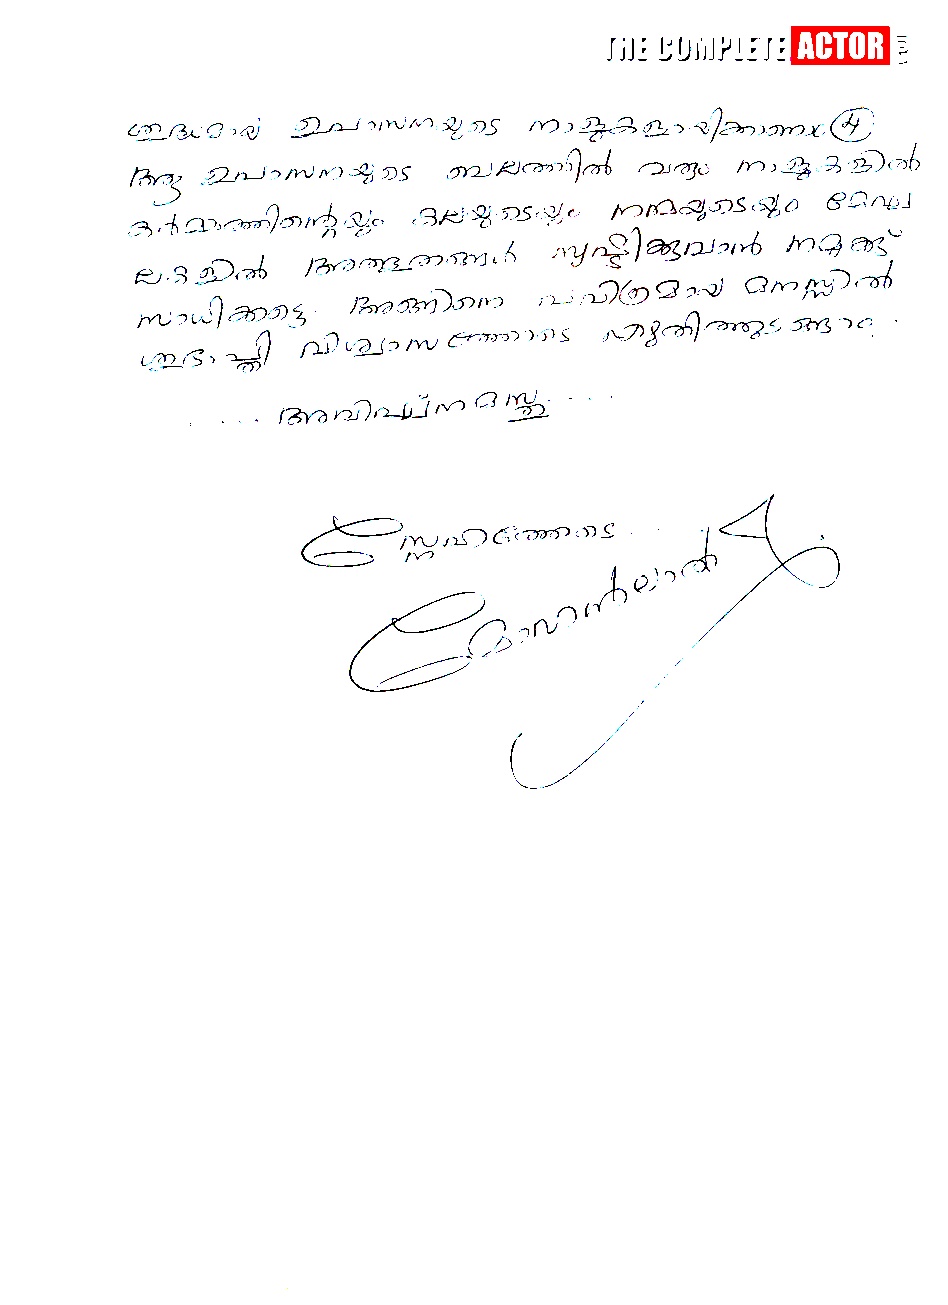 THE COMPLETE ACTOR
ശുദ്ധമായ ഉപാസനയുടെ നാളുകളായിക്കാണാം (4)
ആ ഉപാസനയുടെ ബലത്തിൽ വരും നാളുകളിൽ
കർമ്മത്തിന്റെയും കലയുടെയും നന്മയുടെയും മേഖ
ലകളിൽ അത്ഭുതങ്ങൾ സൃഷ്ടിക്കുവാൻ നമുക്ക്
സാധിക്കട്ടെ. അങ്ങിനെ പവിത്രമായ മനസ്സിൽ
ശുഭാപ്തി വിശ്വാസത്തോടെ എഴുതിത്തുടങ്ങാം.
.... അവിഘ്നമസ്തു ....
സ്നേഹത്തോടെ ...
മോഹൻലാൽ